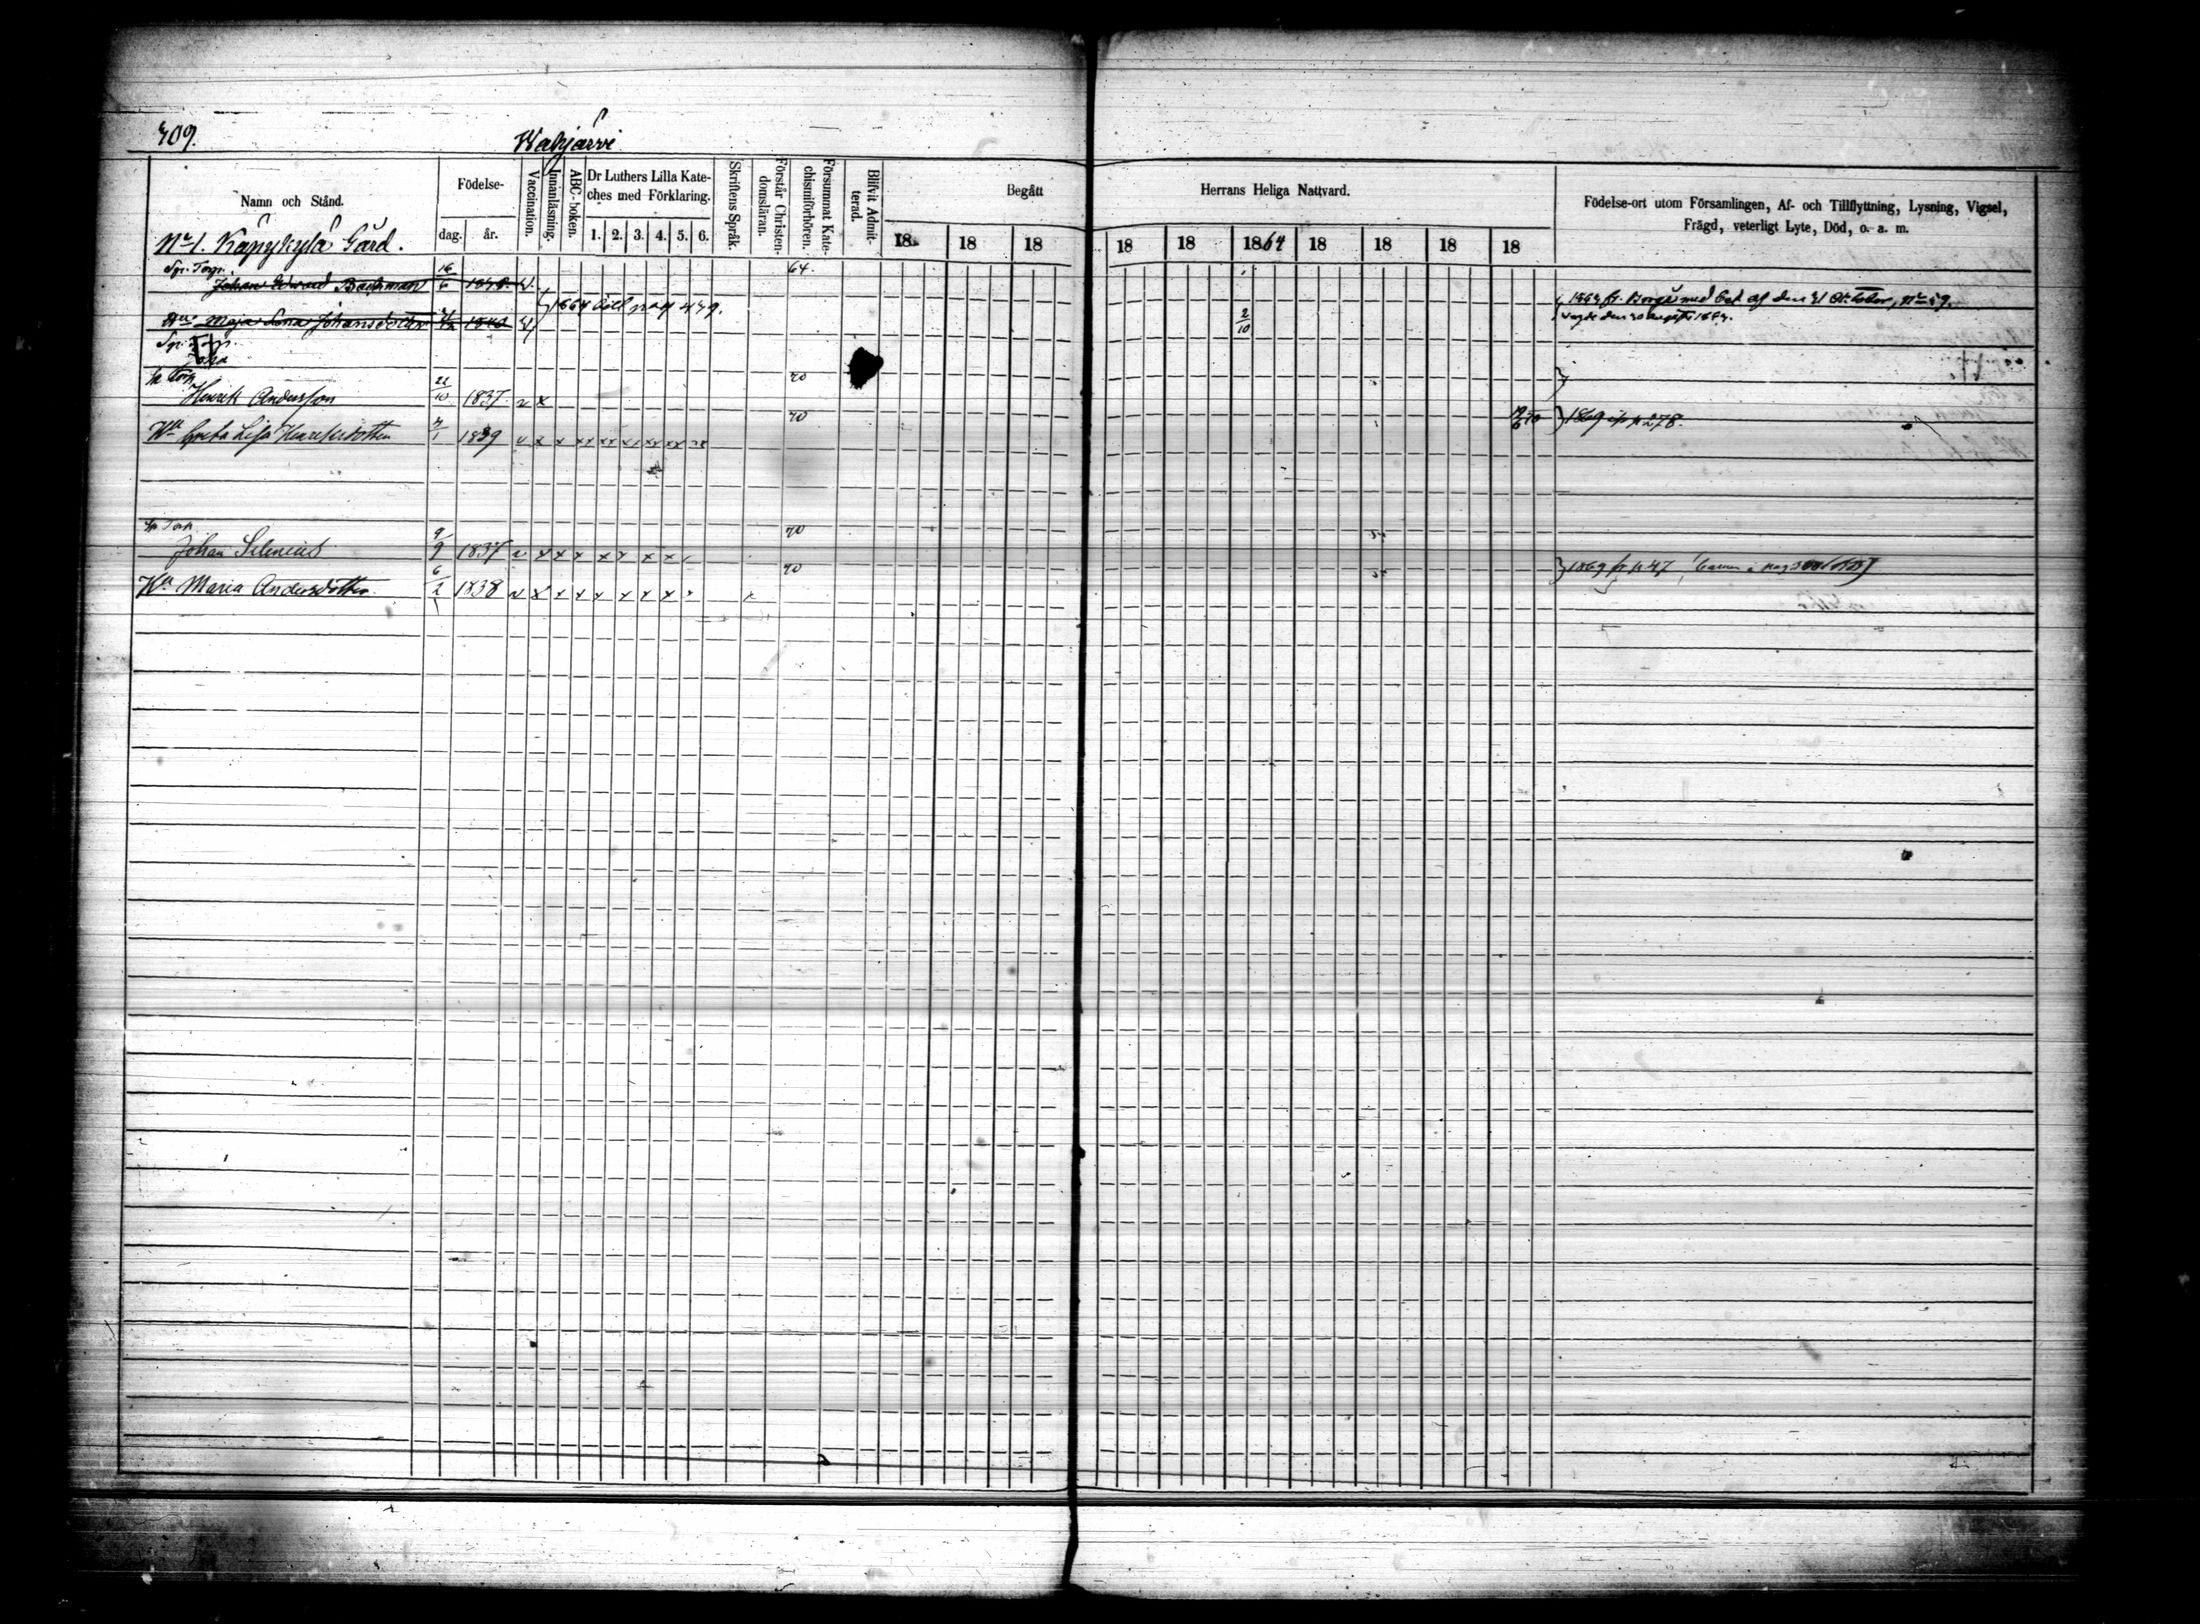 409.
Wahjärvi
Namn och Stånd.
Födelse-
dag.
år.
Vaccination.
Innanläsning.
ABC-boken.
Dr Luthers Lilla Kate-
ches med Förklaring.
1. 2. 3. 4. 5. 6.
Skriftens Språk.
Förstår Christen-
domsläran.
Försummat Kate-
chismiförhören.
Blifvit Admit-
terad.
Begått
Herrans Heliga Nattvard.
18 18 18 18 18 1864 18 18 18 18
Födelse-ort utom Församlingen, Af- och Tillflyttning, Lysning, Vigsel,
Frägd, veterligt Lyte, Död, o. a. m.
No 1. Käpykylä Gård.
Johan Edward Backman 16/6 1848. v. 64.
1864 till pag 439.
1864 fr. Borgå med bet af den 21 October, No 59.
Hu Maja Lena Johansdotter 1840 v 2/10
Henrik Andersson 22/10 1837. v x 70
Hu Greta Lisa Henriksdotter 4/1 1839 v x x 70
1869 p 278.
Johan Selenius 9/9 1837 v x x x x x x x 70
Hu Maria Andersdotter 6/2 1838 v x x x x x x x x 70
1869 fr p 47